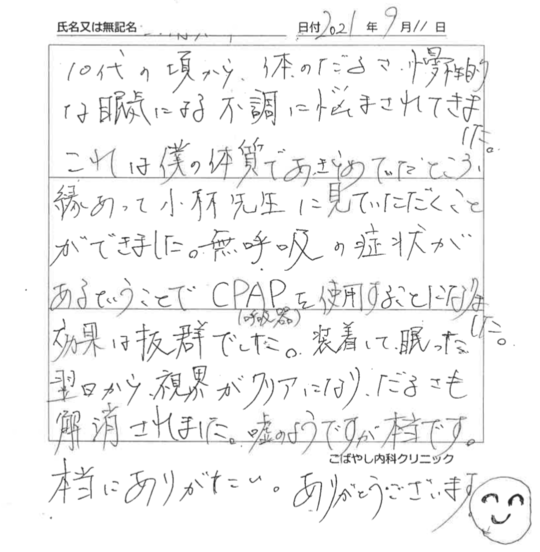 氏名又は無記名 日付 2021 年 9 月 11 日
10代の頃から、体のだるさ、慢性的
な眠気による不調に悩まされてきま
した。
これは僕の体質であきらめていたところ、
縁あって小林先生に見ていただくこと
ができました。無呼吸の症状が
あるということで CPAPを使用することになりま
した。
(呼吸器)
効果は抜群でした。装着して眠った
翌日から、視界がクリアになり、だるさも
解消されました。嘘のようですが本当です。
こばやし内科クリニック
本当にありがたい。ありがとうございます